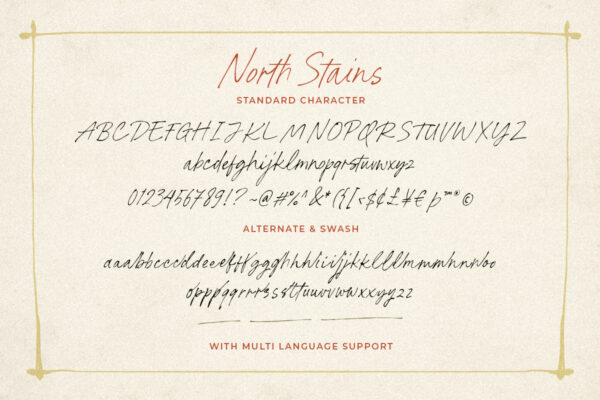 North Stains
STANDARD CHARACTER
ABCDEFGHIJKLMNOPQRSTUVWXYZ
abcdefghijklmnopqrstuvwxyz
0123456789!? ~@#%^&*({[<$¢£¥€þ™®©
ALTERNATE & SWASH
WITH MULTI LANGUAGE SUPPORT